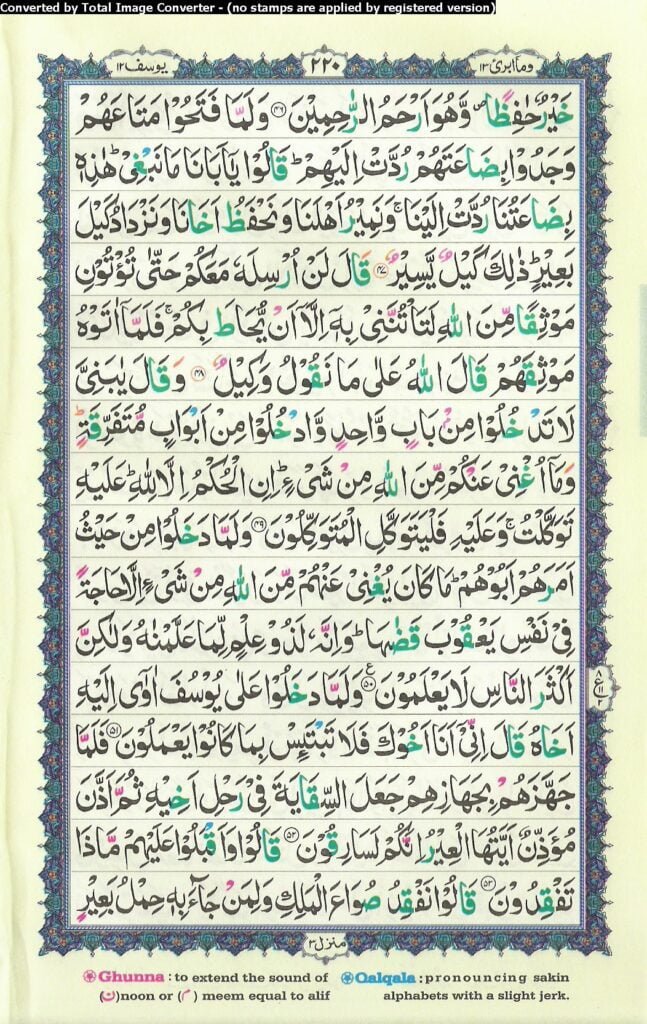 Converted by Total Image Converter - (no stamps are applied by registered version)
وما ابرئ ۱۳
۲۲۰
یوسف ۱۲
خَيْرٌ حٰفِظًا ۪ وَّهُوَ اَرْحَمُ الرّٰحِمِيْنَ ﴿۶۴﴾ وَلَمَّا فَتَحُوْا مَتَاعَهُمْ
وَجَدُوْا بِضَاعَتَهُمْ رُدَّتْ اِلَيْهِمْ ؕ قَالُوْا يٰۤاَبَانَا مَا نَبْغِىْ ؕ هٰذِهٖ
بِضَاعَتُنَا رُدَّتْ اِلَيْنَا ۚ وَنَمِيْرُ اَهْلَنَا وَنَحْفَظُ اَخَانَا وَنَزْدَادُ كَيْلَ
بَعِيْرٍ ؕ ذٰلِكَ كَيْلٌ يَّسِيْرٌ قَالَ لَنْ اُرْسِلَهٗ مَعَكُمْ حَتّٰى تُؤْتُوْنِ
مَوْثِقًا مِّنَ اللّٰهِ لَتَاْتُنَّنِىْ بِهٖۤ اِلَّاۤ اَنْ يُّحَاطَ بِكُمْ ۚ فَلَمَّاۤ اٰتَوْهُ
مَوْثِقَهُمْ قَالَ اللّٰهُ عَلٰى مَا نَقُوْلُ وَكِيْلٌ وَقَالَ يٰبَنِىَّ
لَا تَدْخُلُوْا مِنْۢ بَابٍ وَّاحِدٍ وَّادْخُلُوْا مِنْ اَبْوَابٍ مُّتَفَرِّقَةٍ ؕ
وَمَاۤ اُغْنِىْ عَنْكُمْ مِّنَ اللّٰهِ مِنْ شَىْءٍ ؕ اِنِ الْحُكْمُ اِلَّا لِلّٰهِ ؕ عَلَيْهِ
تَوَكَّلْتُ ۚ وَعَلَيْهِ فَلْيَتَوَكَّلِ الْمُتَوَكِّلُوْنَ وَلَمَّا دَخَلُوْا مِنْ حَيْثُ
اَمَرَهُمْ اَبُوْهُمْ ؕ مَا كَانَ يُغْنِىْ عَنْهُمْ مِّنَ اللّٰهِ مِنْ شَىْءٍ اِلَّا حَاجَةً
فِىْ نَفْسِ يَعْقُوْبَ قَضٰىهَا ؕ وَاِنَّهٗ لَذُوْ عِلْمٍ لِّمَا عَلَّمْنٰهُ وَلٰكِنَّ
اَكْثَرَ النَّاسِ لَا يَعْلَمُوْنَ وَلَمَّا دَخَلُوْا عَلٰى يُوْسُفَ اٰوٰۤى اِلَيْهِ
اَخَاهُ قَالَ اِنِّىْۤ اَنَا اَخُوْكَ فَلَا تَبْتَئِسْ بِمَا كَانُوْا يَعْمَلُوْنَ فَلَمَّا
جَهَّزَهُمْ بِجَهَازِهِمْ جَعَلَ السِّقَايَةَ فِىْ رَحْلِ اَخِيْهِ ثُمَّ اَذَّنَ
مُؤَذِّنٌ اَيَّتُهَا الْعِيْرُ اِنَّكُمْ لَسَارِقُوْنَ قَالُوْا وَاَقْبَلُوْا عَلَيْهِمْ مَّاذَا
تَفْقِدُوْنَ قَالُوْا نَفْقِدُ صُوَاعَ الْمَلِكِ وَلِمَنْ جَآءَ بِهٖ حِمْلُ بَعِيْرٍ
منزل ۳
Ghunna : to extend the sound of
(ن) noon or (م) meem equal to alif
Qalqala : pronouncing sakin
alphabets with a slight jerk.